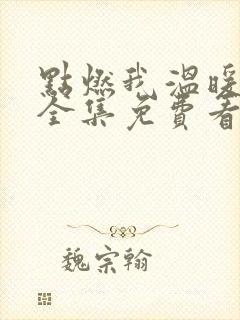 點燃我溫暖
全集免費看
魏宗翰